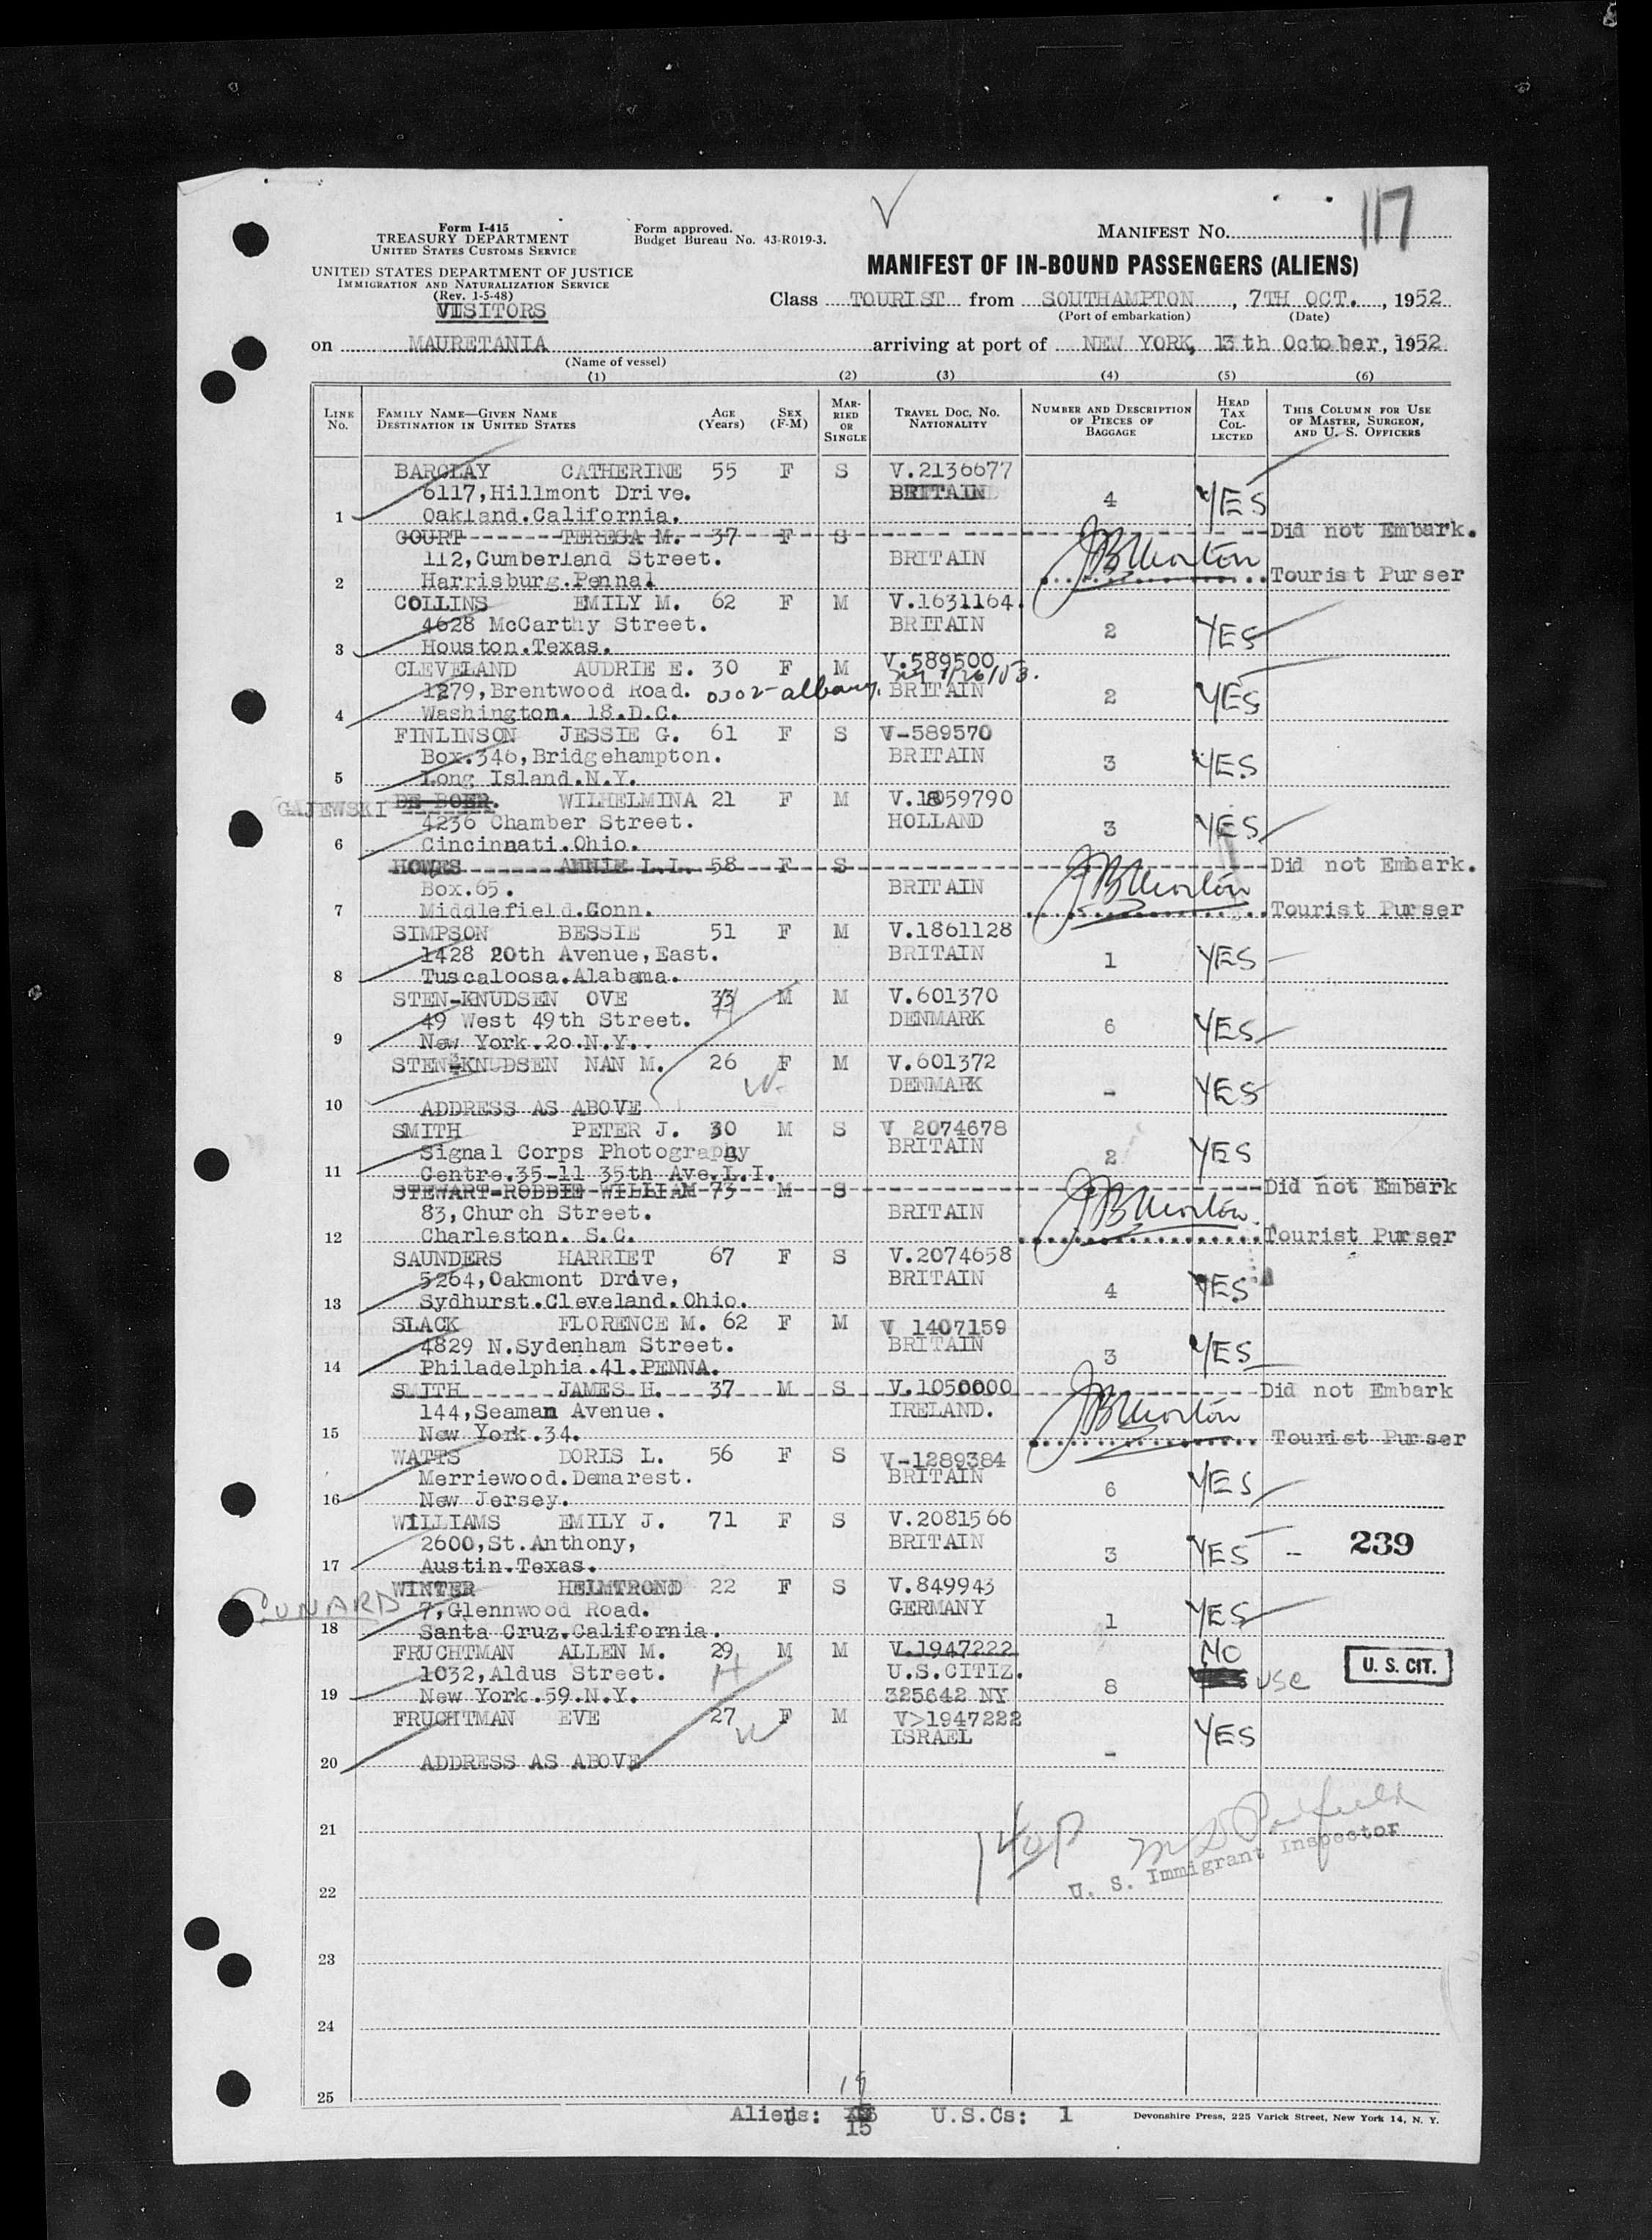 117
Form I-415
TREASURY DEPARTMENT
UNITED STATES CUSTOMS SERVICE
Form approved.
Budget Bureau No. 43-R019-3.
MANIFEST NO.
UNITED STATES DEPARTMENT OF JUSTICE
IMMIGRATION AND NATURALIZATION SERVICE
(Rev. 1-5-48)
VISITORS
MANIFEST OF IN-BOUND PASSENGERS (ALIENS)
Class TOURIST from SOUTHAMPTON, 7TH OCT., 1952
(Port of embarkation) (Date)
on MAURETANIA arriving at port of NEW YORK, 13th October, 1952
(Name of vessel)
(1) (2) (3) (4) (5) (6)
LINE NO. FAMILY NAME—GIVEN NAME DESTINATION IN UNITED STATES AGE (Years) SEX (F-M) MARRIED OR SINGLE TRAVEL DOC. NO. NATIONALITY NUMBER AND DESCRIPTION OF PIECES OF BAGGAGE HEAD TAX COLLECTED THIS COLUMN FOR USE OF MASTER, SURGEON, AND U. S. OFFICERS
BARCLAY CATHERINE 55 F S V.2136677
6117,Hillmont Drive. BRITAIN 4 YES
1 Oakland.California.
COURT TERESA M. 37 F S Did not Embark.
112,Cumberland Street. BRITAIN JB Morton
2 Harrisburg.Pennal Tourist Purser
COLLINS EMILY M. 62 F M V.1631164.
4628 McCarthy Street. BRITAIN 2 YES
3 Houston.Texas.
CLEVELAND AUDRIE E. 30 F M V.589500
1279,Brentwood Road. 0302-albany. BRITAIN 2 YES
4 Washington. 18.D.C.
FINLINSON JESSIE G. 61 F S V-589570
Box.346,Bridgehampton. BRITAIN 3 YES
5 Long Island.N.Y.
GAJEWSKI DE BOER. WILHELMINA 21 F M V.1859790
4236 Chamber Street. HOLLAND 3 YES
6 Cincinnati.Ohio.
HOWES ANNIE L.I. 58 F S Did not Embark.
Box.65. BRITAIN JB Morton
7 Middlefield.Conn. Tourist Purser
SIMPSON BESSIE 51 F M V.1861128
1428 20th Avenue,East. BRITAIN 1 YES
8 Tuscaloosa.Alabama.
STEN-KNUDSEN OVE 33 M M V.601370
49 West 49th Street. H DENMARK 6 YES
9 New York.20.N.Y..
STEN-KNUDSEN NAN M. 26 F M V.601372
W DENMARK - YES
10 ADDRESS AS ABOVE
SMITH PETER J. 30 M S V 2074678
Signal Corps Photography BRITAIN 2 YES
11 Centre.35-11 35th Ave.L.I.
STEWART-RODDIE WILLIAM 73 M S Did not Embark
83,Church Street. BRITAIN JB Morton
12 Charleston. S.C. Tourist Purser
SAUNDERS HARRIET 67 F S V.2074658
5264,Oakmont Drdve, BRITAIN 4 YES
13 Sydhurst.Cleveland.Ohio.
SLACK FLORENCE M. 62 F M V 1407159
4829 N.Sydenham Street. BRITAIN 3 YES
14 Philadelphia.41.PENNA.
SMITH JAMES H. 37 M S V.1050000 Did not Embark
144,Seaman Avenue. IRELAND. JB Morton
15 New York.34. Tourist Purser
WATTS DORIS L. 56 F S V-1289384
Merriewood.Demarest. BRITAIN 6 YES
16 New Jersey.
WILLIAMS EMILY J. 71 F S V.2081566
2600,St.Anthony, BRITAIN 3 YES - 239
17 Austin.Texas.
WINTER HELMTROND 22 F S V.849943
CUNARD 7,Glennwood Road. GERMANY 1 YES
18 Santa Cruz.California.
FRUCHTMAN ALLEN M. 29 M M V.1947222 NO
1032,Aldus Street. H U.S.CITIZ. 8 USC U. S. CIT.
19 New York.59.N.Y. 325642 NY
FRUCHTMAN EVE 27 F M V>1947222
W ISRAEL - YES
20 ADDRESS AS ABOVE
21
U. S. Immigrant Inspector
22
23
24
25
Aliens: 15 U.S.Cs: 1
Devonshire Press, 225 Varick Street, New York 14, N. Y.